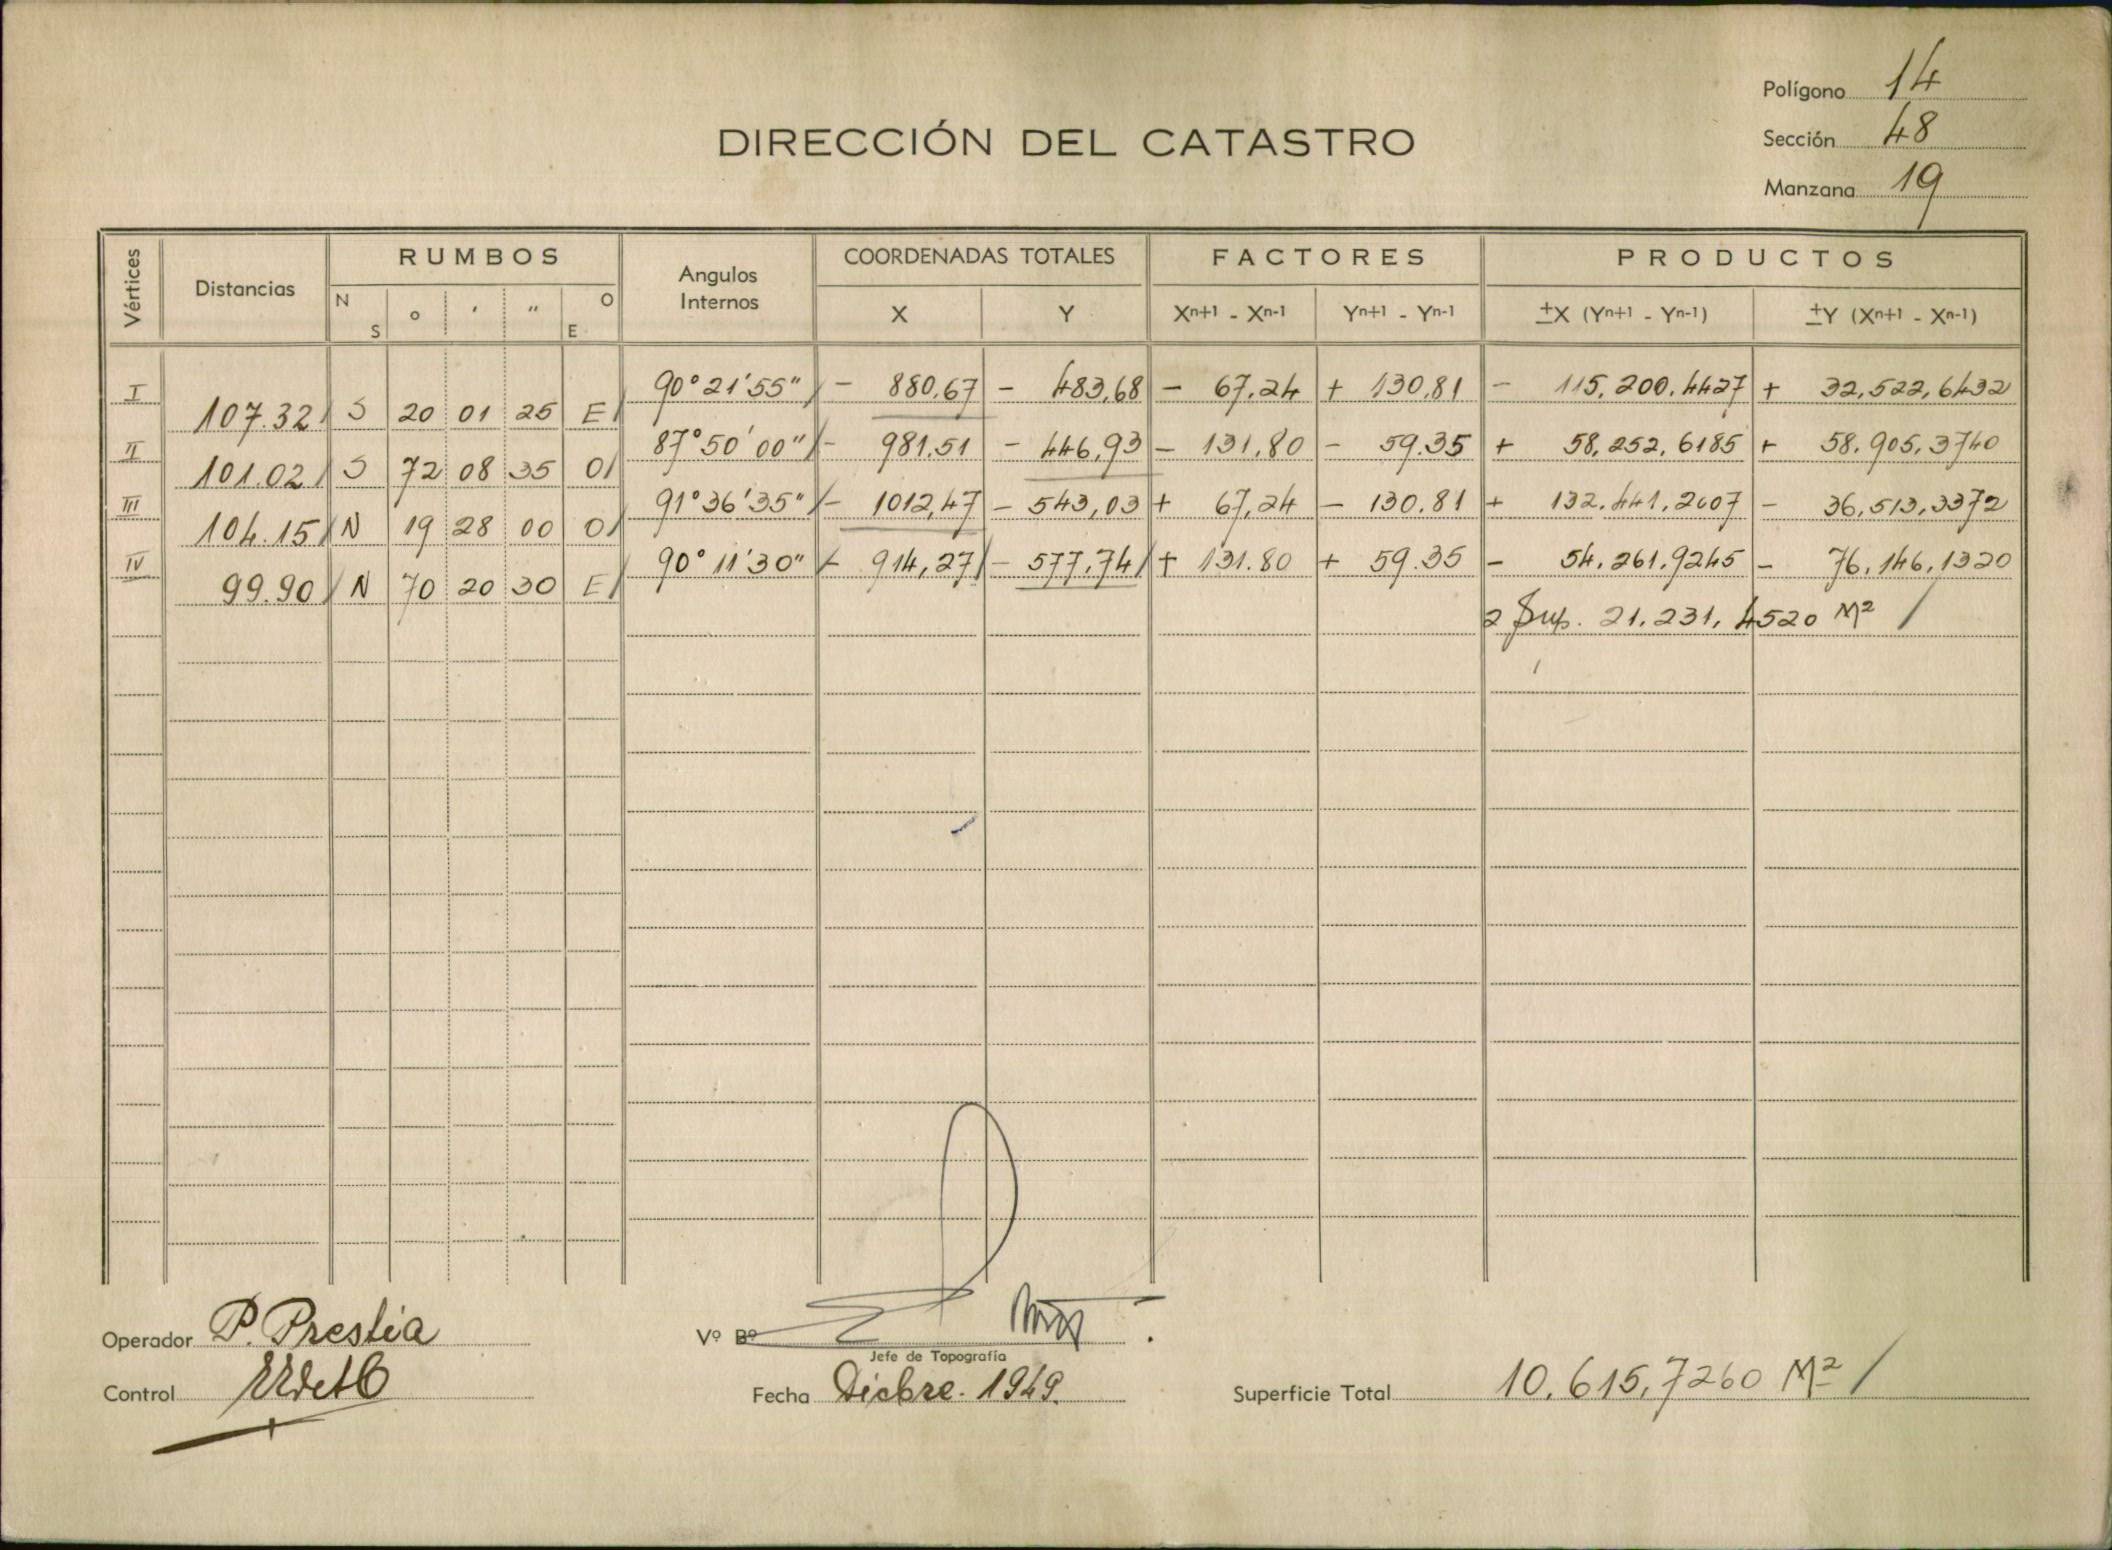 Polígono 14
DIRECCIÓN DEL CATASTRO
Sección 48
Manzana 19
Vértices Distancias RUMBOS Angulos Internos COORDENADAS TOTALES FACTORES PRODUCTOS
N S ° ' " O E X Y Xn+1 - Xn-1 Yn+1 - Yn-1 ±X (Yn+1 - Yn-1) ±Y (Xn+1 - Xn-1)
I 90° 21' 55" - 880,67 - 483,68 - 67,24 + 130,81 - 115,200,4427 + 32,522,6432
107.32 S 20 01 25 E
II 87° 50' 00" - 981,51 - 446,93 - 131,80 - 59.35 + 58,252,6185 + 58.905,3740
101.02 S 72 08 35 O
III 91° 36' 35" - 1012,47 - 543,03 + 67,24 - 130.81 + 132.441,2007 - 36,513,3372
104.15 N 19 28 00 O
IV 90° 11' 30" - 914,27 - 577,74 + 131.80 + 59.35 - 54.261,9245 - 76,146,1320
99.90 N 70 20 30 E
2 Sup. 21.231,4520 M²
Operador P. Prestia
Vº Bº
Jefe de Topografía
Control
Fecha Dicbre. 1949.
Superficie Total 10.615,7260 M²